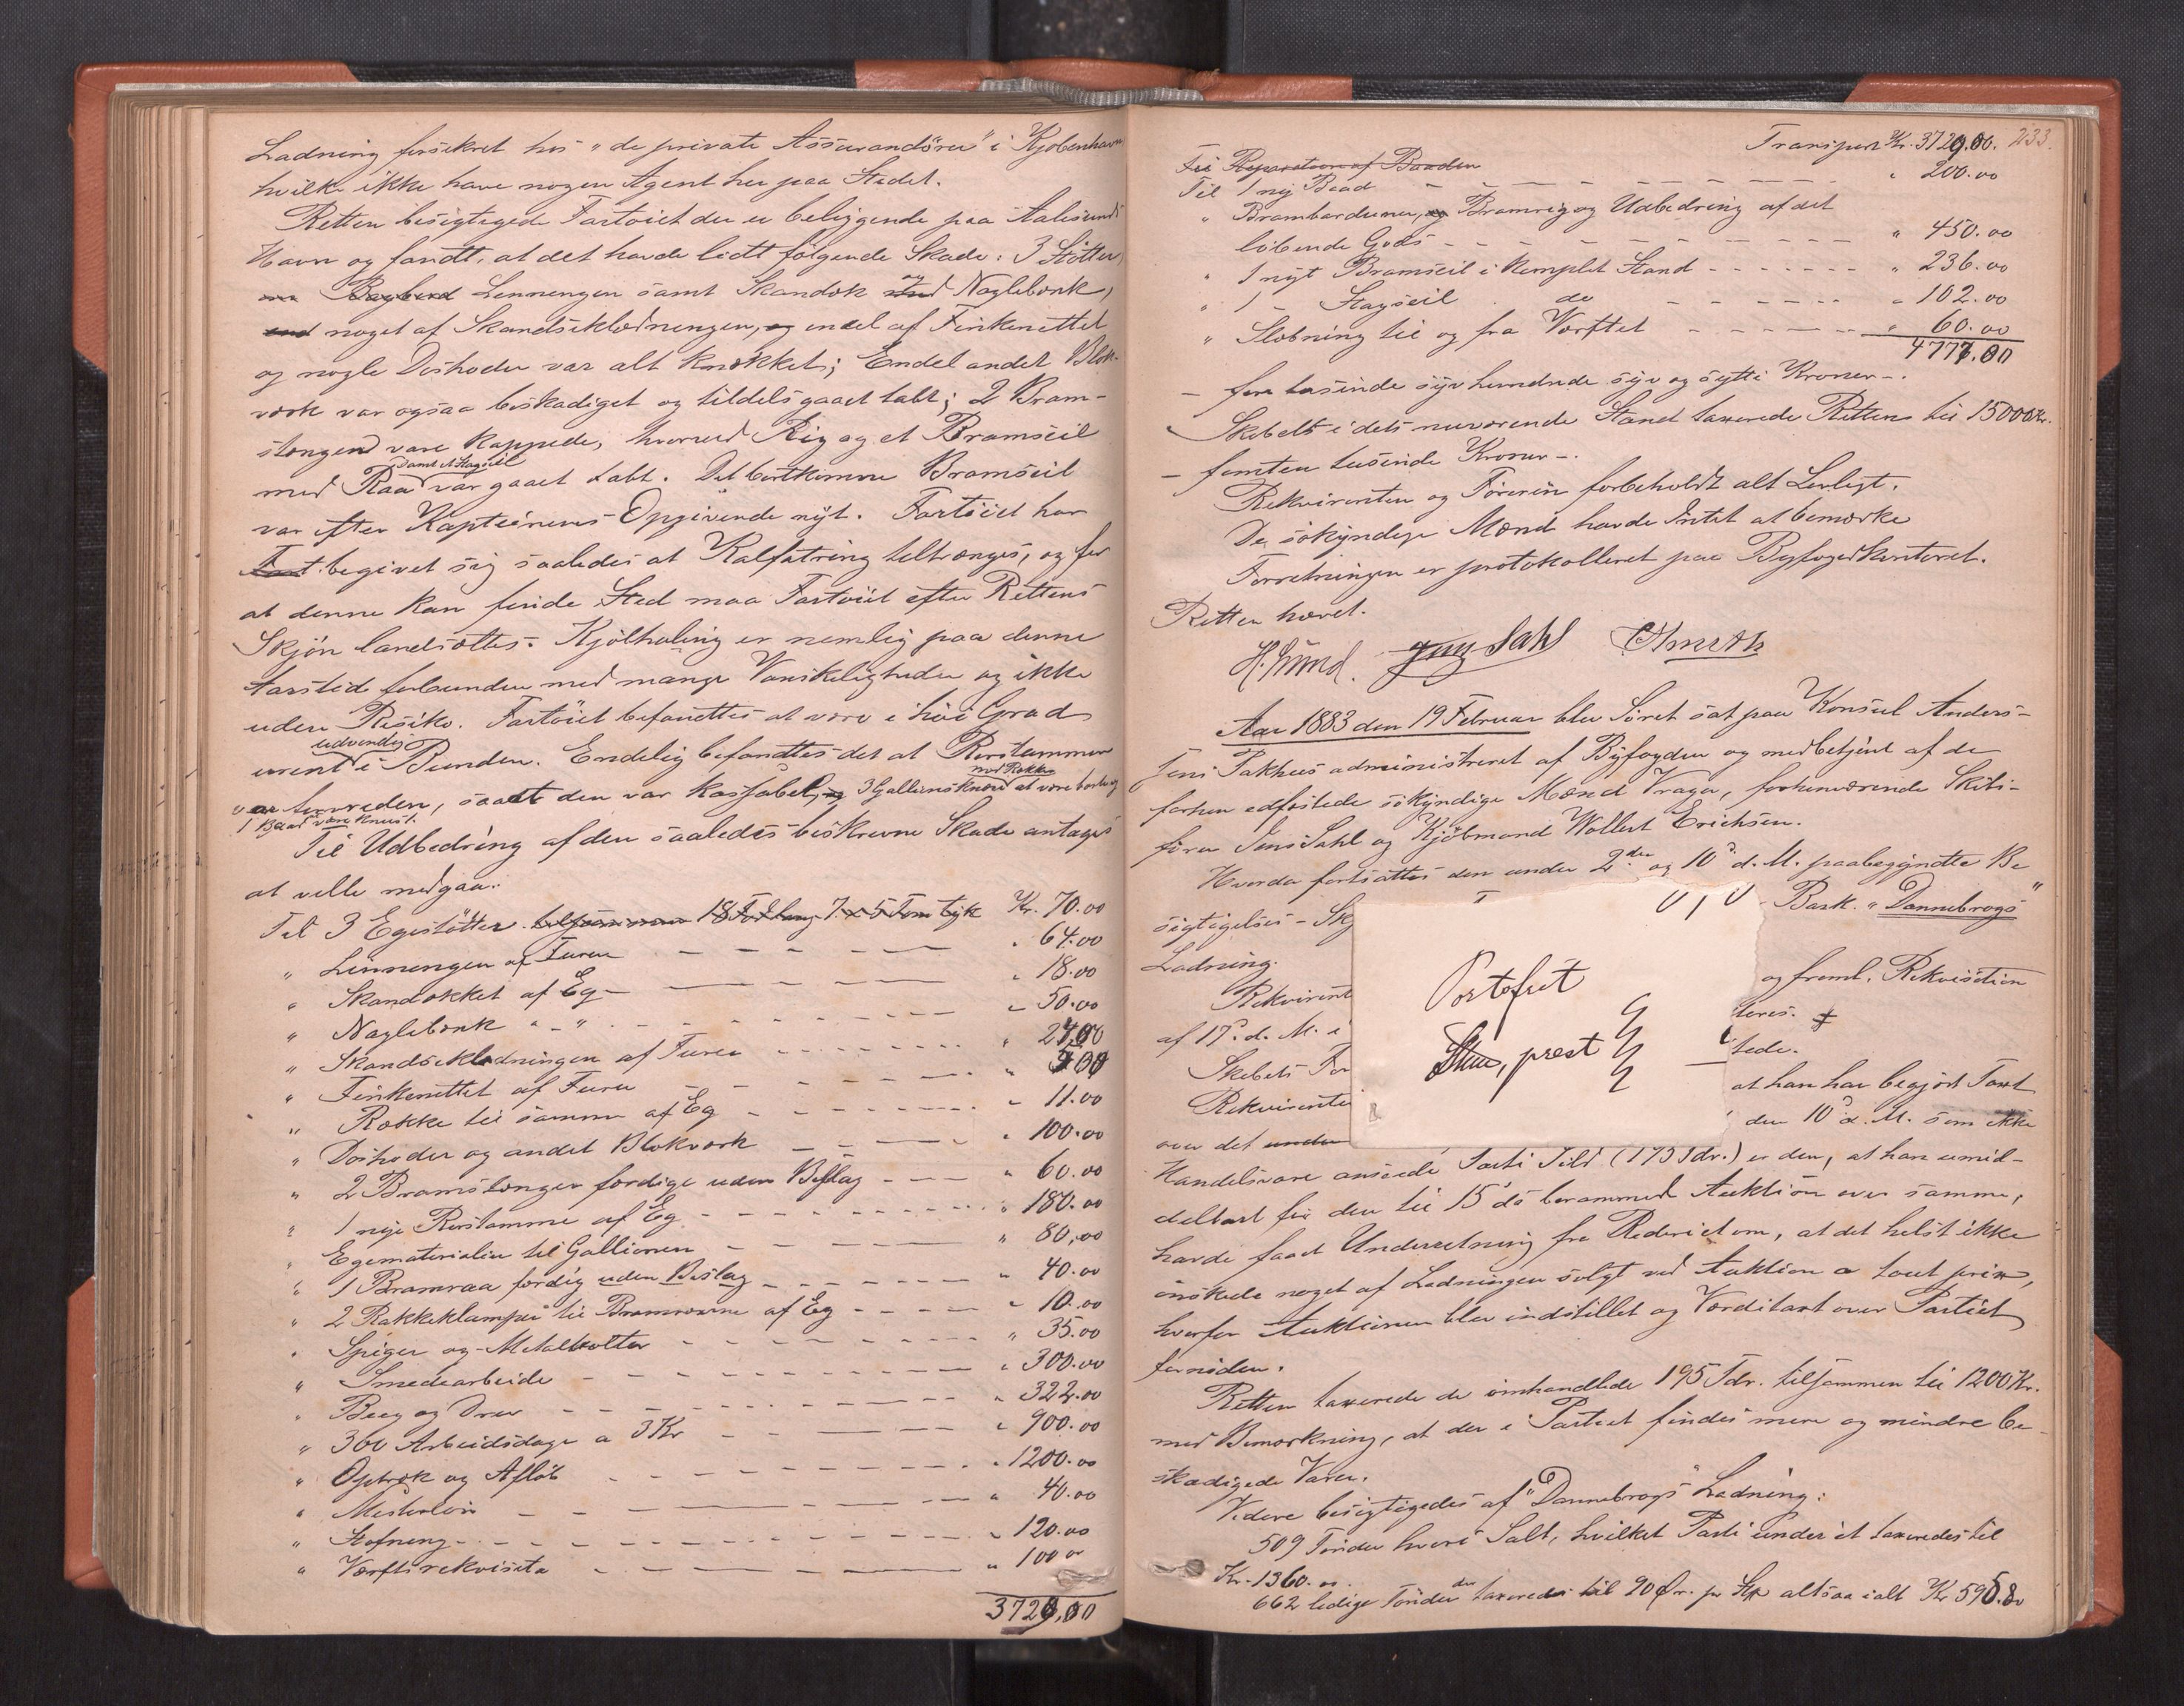 Ladning forsikret hos "de private Assurandörer" i Kjøbenhavn
hvilke ikke have nogen Agent her paa Stedet.
Retten besigtigede Fartøiet der er beliggende paa Aalesunds
Havn og fandt, at det havde lidt følgende Skade: 3 Støtter,
Lenningen samt Skandæk og Naglebænk,
noget af Skandseklædningen, og endel af Finkenettet
og nogle Doshoder var alt knækket; Endel andet Blok-
værk var ogsaa beskadiget og tildels gaaet tabt; 2 Bram-
stænger vare kappede, hvorved Rig og et Bramseil
med Raa samt et Stagseil var gaaet tabt. Det bortkomne Bramseil
var efter Kapteinens Opgivende nyt. Fartøiet har
begivet sig saaledes at Kalfatring tiltrænges, og for
at denne kan finde Sted maa Fartøiet efter Rettens
Skjøn landsættes. Kjølhaling er nemlig paa denne
Aarstid forbunden med mange Vanskeligheder og ikke
uden Risiko. Fartøiet befandtes at være i høi Grad
urent udvendig i Bunden. Endelig befandtes det at Rorstammen
var forvreden, saa at den var kassabel, 3 Gallionsknær med Rækker at være borte og
1 Baad være knust.
Til Udbedring af den saaledes beskrevne Skade antages
at ville medgaa:
Til 3 Egestøtter 18 Fod lang 7 x 5 Tom tyk Kr. 70.00
" Linningen af Furu - - - " 64.00
" Skandækket af Eg - - - " 18.00
" Naglebænk " - " - - - " 50.00
" Skandseklædningen af Furu - - - "
" Finkenettet af Furu - - - "
" Række til samme af Eg - - - " 11.00
" Doshoder og andet Blokværk - - - " 100.00
" 2 Bramstænger færdige uden Beslag - - - " 60.00
" 1 nye Rorstamme af Eg - - - " 180.00
" Egematerialier til Gallionen - - - " 80.00
" 1 Bramraa færdig uden Beslag - - - " 40.00
" 2 Rakkeklamper til Bramraaerne af Eg - - - " 10.00
" Spiger og Metalbolter - - - " 35.00
" Smedearbeide - - - " 300.00
" Beeg og Drev - - - " 322.00
" 300 Arbeidsdage a 3 Kr - - - " 900.00
" Optræk og Afløb - - - " 1200.00
" Mesterløn - - - " 40.00
" Stofning - - - " 120.00
" Værftsrekvisita - - - " 100.00
3729,00
Transport Kr. 3729.00. 233.
Til Reparation af Baaden
Til 1 ny Baad - - - " 200.00
" Brambarduner, Bramrig og Udbedring af det
løbende Gods - - - " 450.00
" 1 nyt Bramseil i komplet Stand - - - " 236.00
" 1 - Stagseil do - - - " 102.00
" Slæbning til og fra Værftet - - - " 60.00
4777.00
- fire tusinde syv hundrede syv og sytti Kroner -.
Skibet i dets nuværende Stand taxerede Retten til 15000 Kr.
- femten tusinde Kroner -.
Rekvirenten og Føreren forbeholdt alt Lovligt.
De søkyndige Mænd havde Intet at bemærke
Forretningen er protokolleret paa Byfogedkontoret.
Retten hævet.
H. Lund. Jens Dahl
Aar 1883 den 19 Februar blev Søret sat paa Konsul Anders-
sens Pakhus administreret af Byfogden og medbetjent af de
forhen edfæstede søkyndige Mænd Vrager, forhenværende Skibs-
fører Jens Dahl og Kjøbmand Wollert Erichsen.
Hvorda fortsattes den under 2den og 10 d. M. paabegyndte Be
sigtigelses- Bark. "Dannebrogs"
Ladning.
Rekvirent og freml. Rekvisition
af 17 d. M. teres.
Skibets tede.
Rekvirente at han har begjært Taxt
over det under den 10 d. M. som ikke
Handelsvare ansees Parti Sild (195 Tdr.) er den, at han umid-
delbart før den til 15 ds berammede Auktion over samme,
havde faaet Underretning fra Rederiet om, at det helst ikke
ønskede noget af Ladningen solgt ved Auktion a tout prix,
hvorfor Auktionen blev indstillet og Værditaxt over Partiet
fornøden.
Retten taxerede de omhandlede 195 Tdr. tilsammen til 1200 Kr.
med Bemærkning, at der i Partiet findes mere og mindre be-
skadigede Varer.
Videre besigtigedes af "Dannebrogs" Ladning:
509 Tønder hvori Salt, hvilket Parti under et taxeredes til
Kr. 1360.00.
662 ledige Tønder der taxeredes til 90 Øre pr Stk altsaa ialt Kr 595.80
Portofrit
prest